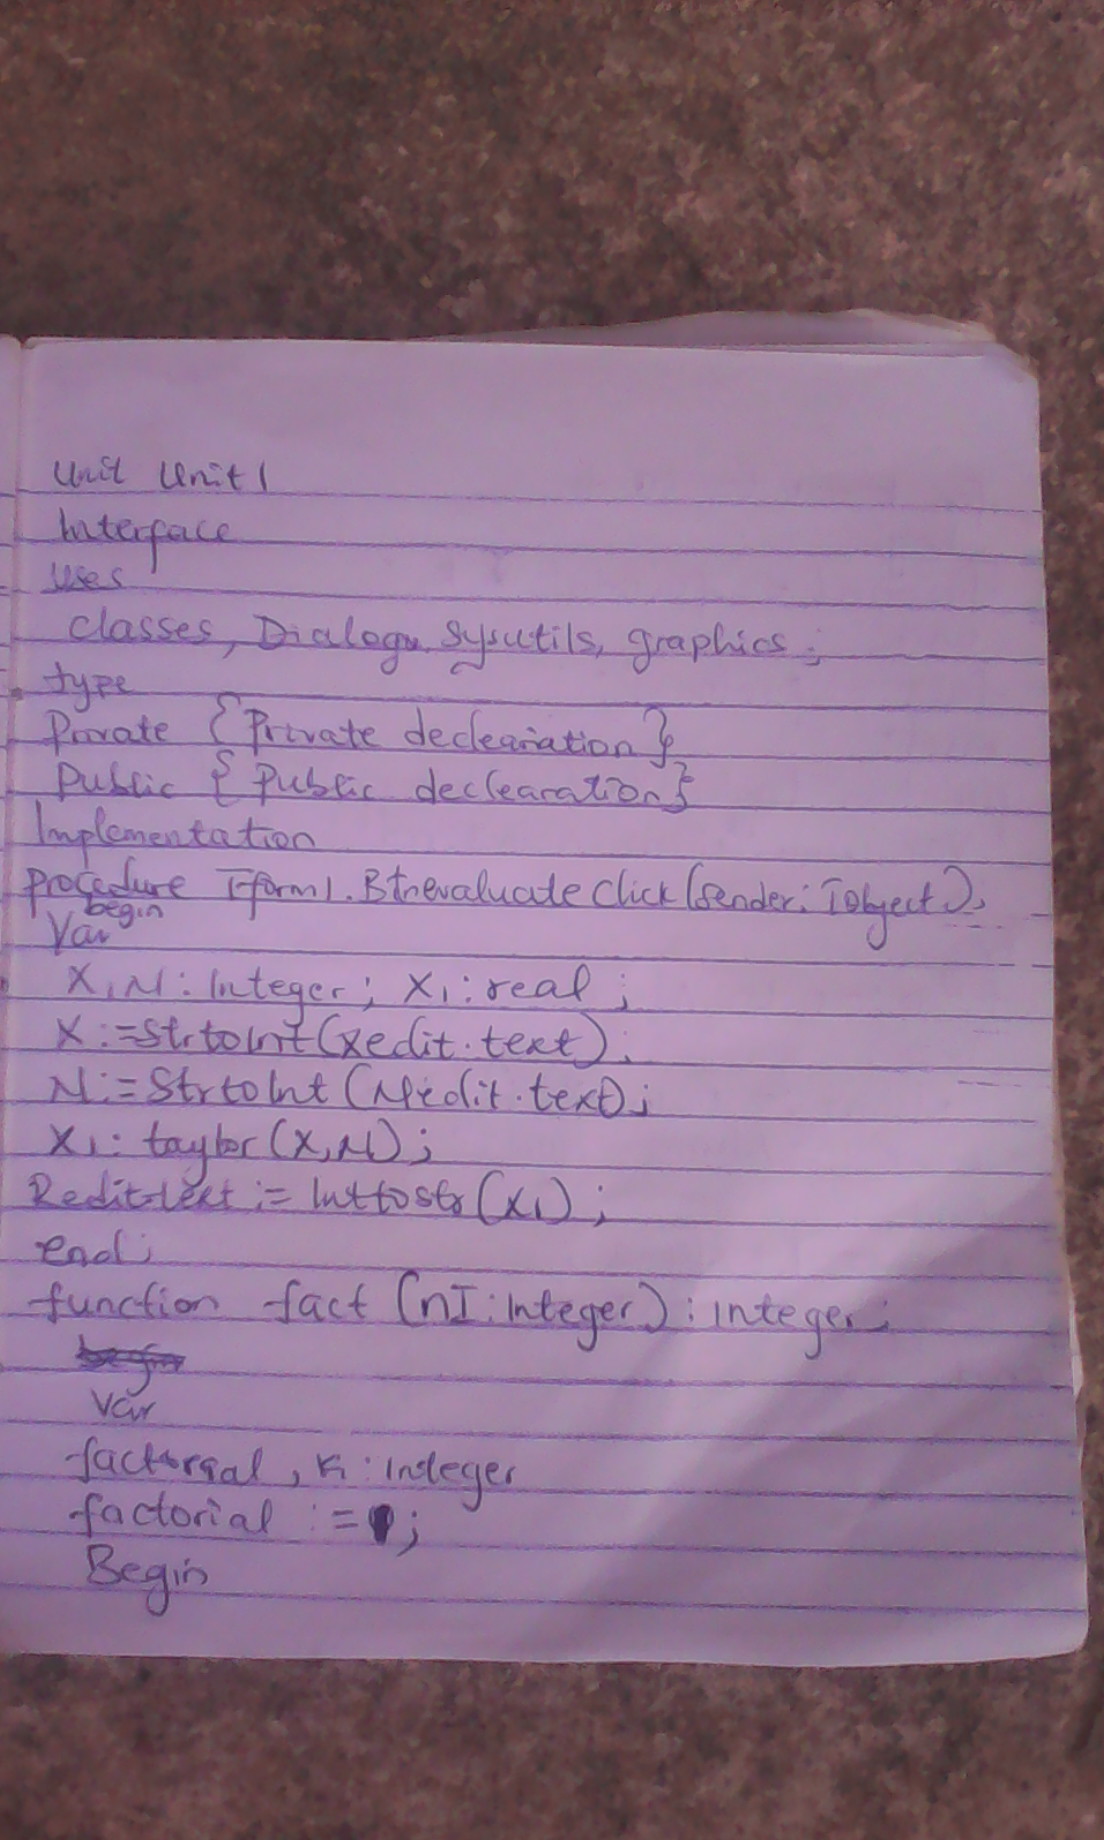 Unit Unit 1
Interface
uses
classes, Dialogs, Sysutils, graphics;
type
Private { Private declearation }
Public { Public declearation }
Implementation
procedure Tform1.BtnevaluateClick(sender: Tobject);
begin
Var
X,N: Integer; X1: real;
X:=StrtoInt(xedit.text);
N:=StrtoInt(Nedit.text);
X1: taylor(X,N);
Redit.text := Inttostr(X1);
end;
function fact (nI: Integer): integer;
Var
factorial, K: integer
factorial := 1;
Begin